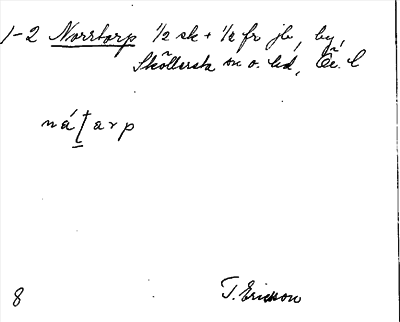 1-2 Norrtorp ½ sk + ½ fr jb, by,
Sköllersta sn o. hd, Ör. l
ná[tarp
8 T. Ericsson